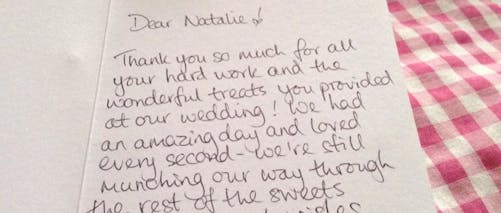 Dear Natalie!
Thank you so much for all
your hard work and the
wonderful treats you provided
at our wedding! We had
an amazing day and loved
every second - we're still
munching our way through
the rest of the sweets